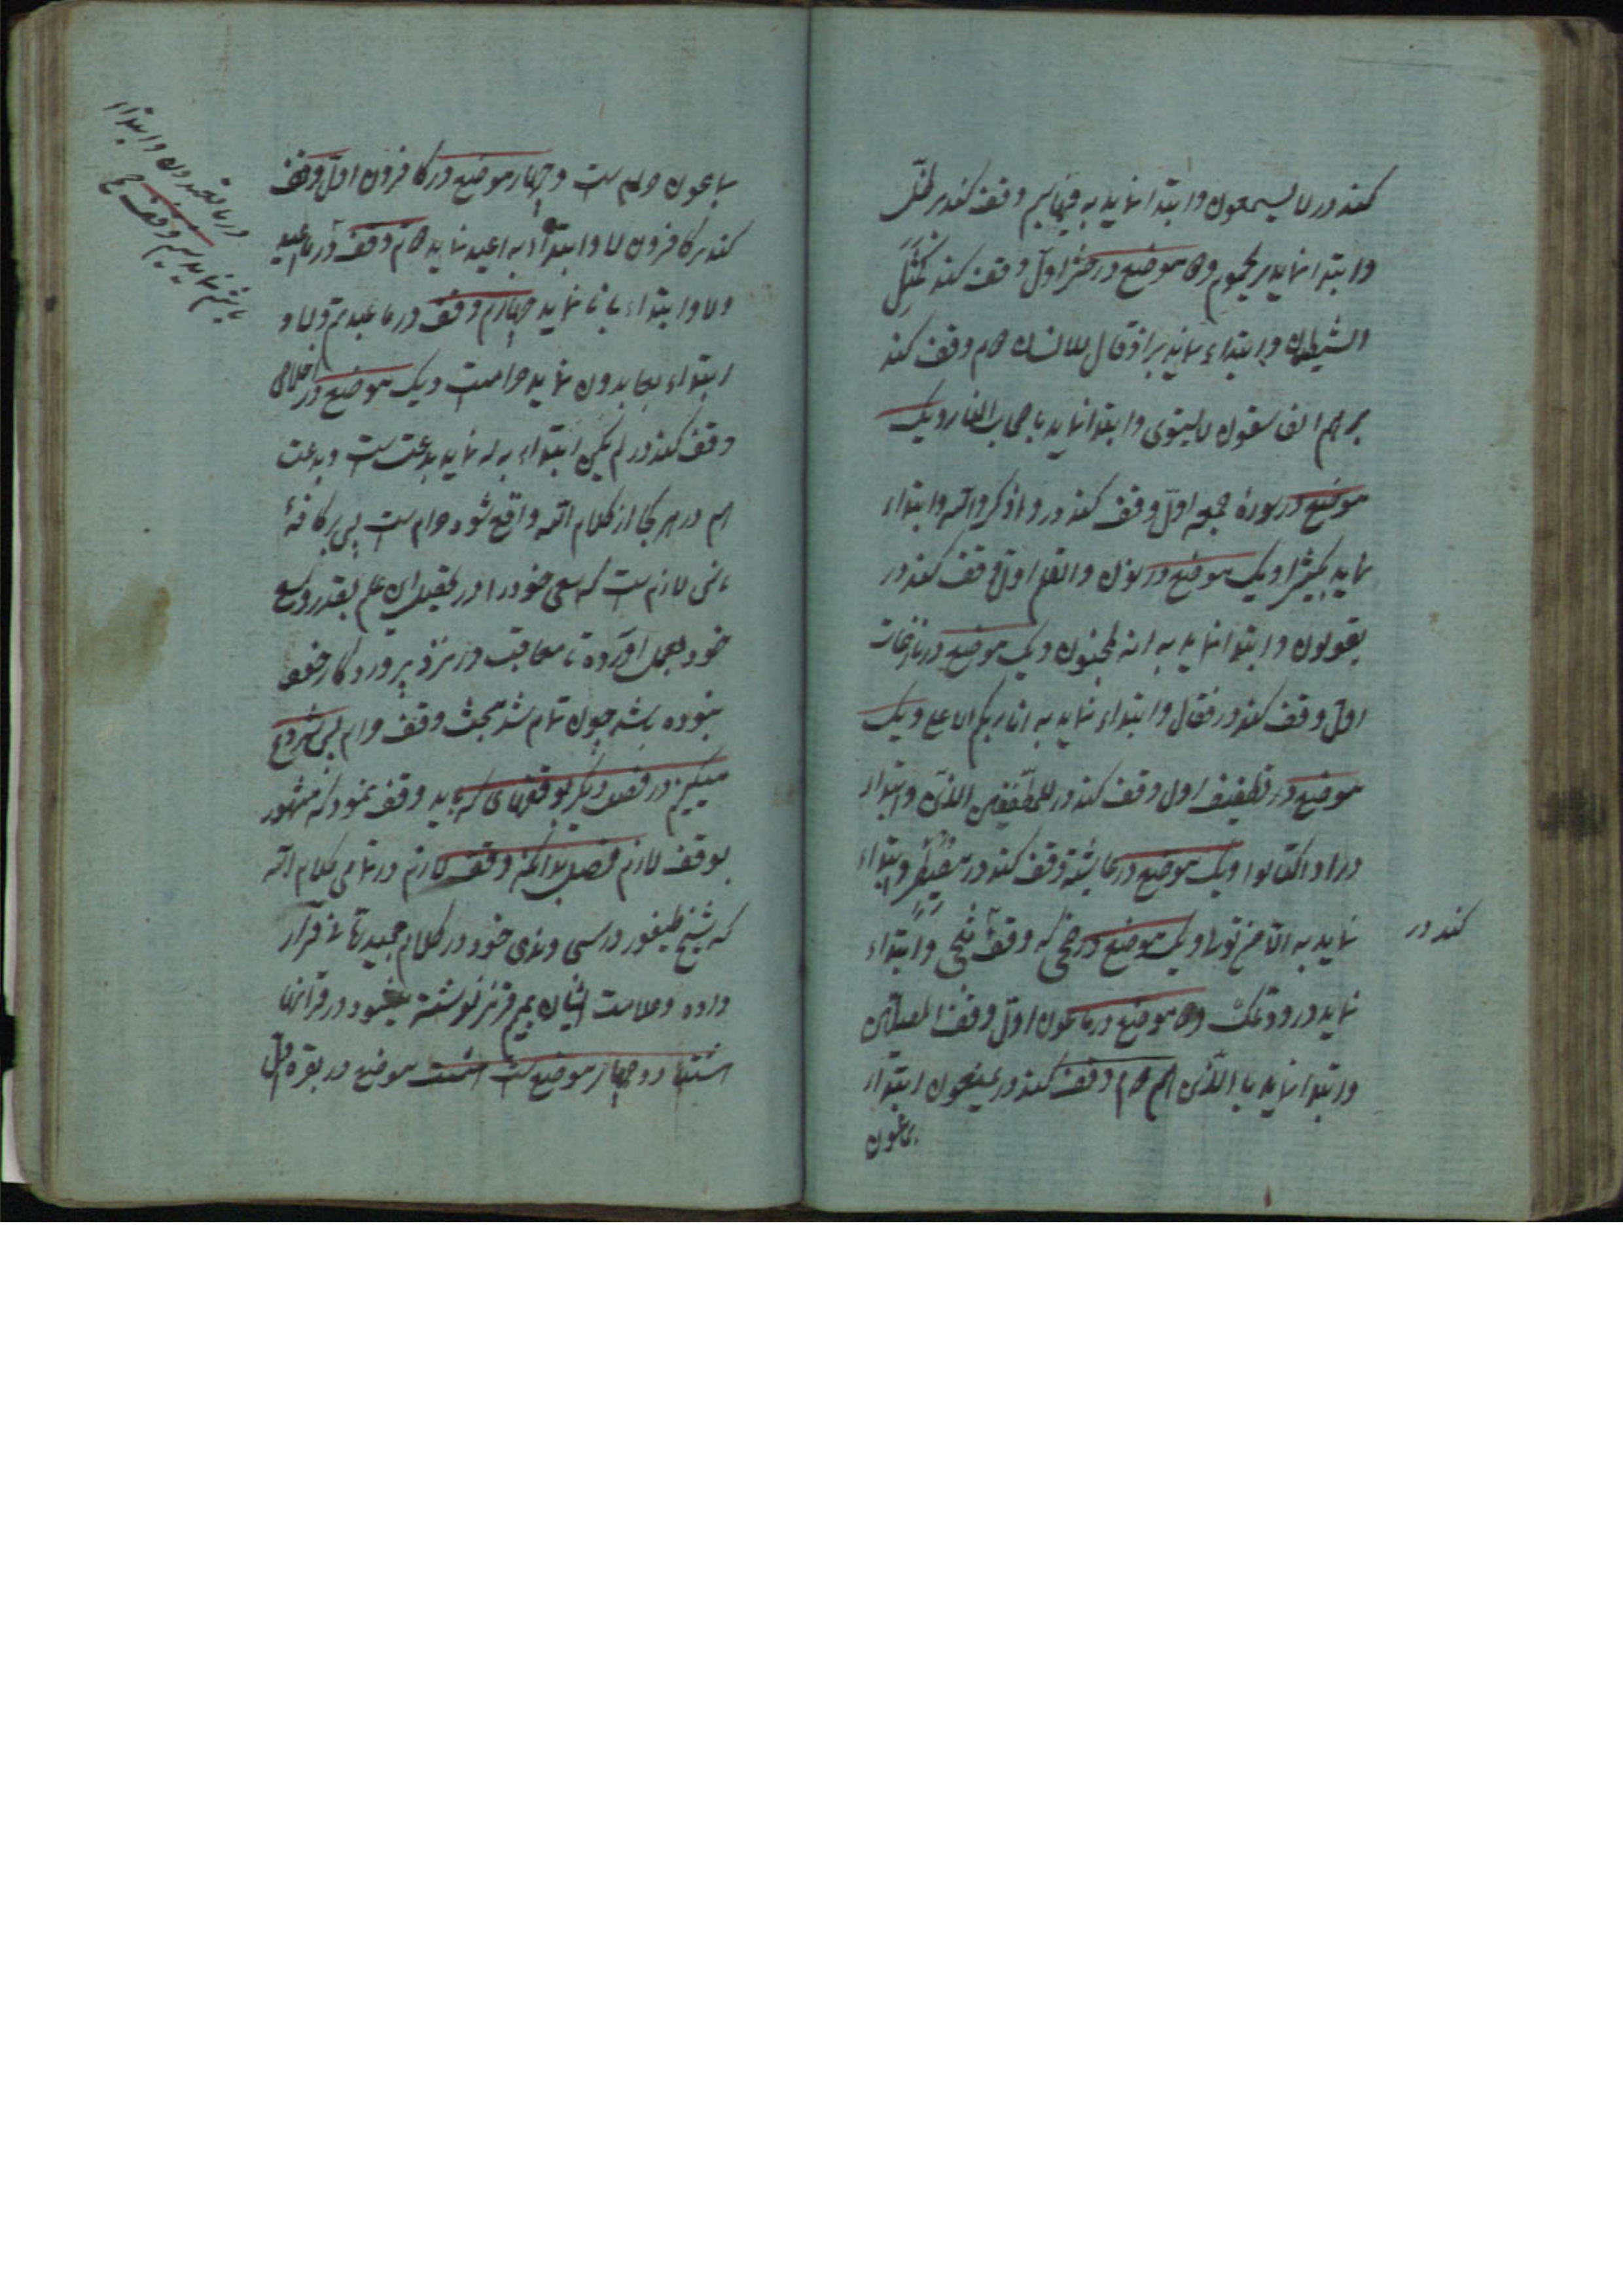 کند در لا یسمعون و ابتدا نماید به فیها بیم وقف کند بر ظلّ
و ابتدا نماید بر یحموم و دو موضع در حشر اول وقف کند کَمَثَلِ
الشیطان و ابتداء نماید بر اذ قال للانسان دوم وقف کند
بر هم الفاسقون لا یستوی و ابتدا نماید باصحاب النار و یک
موضع در سورهٔ جمعه اول وقف کند در و اذکروا الله و ابتداء
نماید بکثیرا و یک موضع در نون والقلم اول وقف کند در
یقولون و ابتدا نماید به انه لمجنون و یک موضع در نازعات
اول وقف کند در فقال و ابتداء نماید به انا ربکم الاعلی و یک
موضع در تطفیف اول وقف کند در للمطففین الذین و ابتداء
در اذا اکتالوا و یک موضع در غاشیة وقف کند در بمصیطر و ابتداء
نماید به الّا من تولا و یک موضع در ضحی که وقف ضحی و ابتداء
کند در
نماید در ودعک و دو موضع در ماعون اول وقف المصلین
و ابتدا نماید با الذین هم دوم وقف کند در یمنعون ابتداء
ماعون
ماعون حرام است و چهار موضع در کافرون اول وقف
کند بر کافرون لا و ابتداء به اعبد نماید دوم وقف در ما اعبد
و لا و ابتداء با نا نماید چهارم وقف در ما عبدتم و لا و
ابتداء بعابدون نماید حرامست و یک موضع در اخلاص
وقف کند در لم یکن ابتداء به له نماید بدعت است و بدعت
هم در هر کجا از کلام الله واقع شود حرام است پس بر کافهٔ
ناس لازم است که سعی خود را در تحصیل این علم بقدر وسع
خود بعمل آورده تا معاقب در نزد پروردگار خود
نبوده باشد چون تمام شد مبحث وقف حرام پس شروع
میکنیم در فصل دیگر بوقفهای که باید وقف نمود که مشهور
بوقف لازم فصل بدانکه وقف لازم در تمامی کلام الله
که شیخ طیفور در سی و ندی خود در کلام مجید ربانی قرار
داده و علامت ایشان بمیم قرمز نوشته میشود در قرآنها
اشتهار دو چهار موضع است هشت موضع در بقره اول
در ما تعبدون و ابتداء
نماید سیم وقف